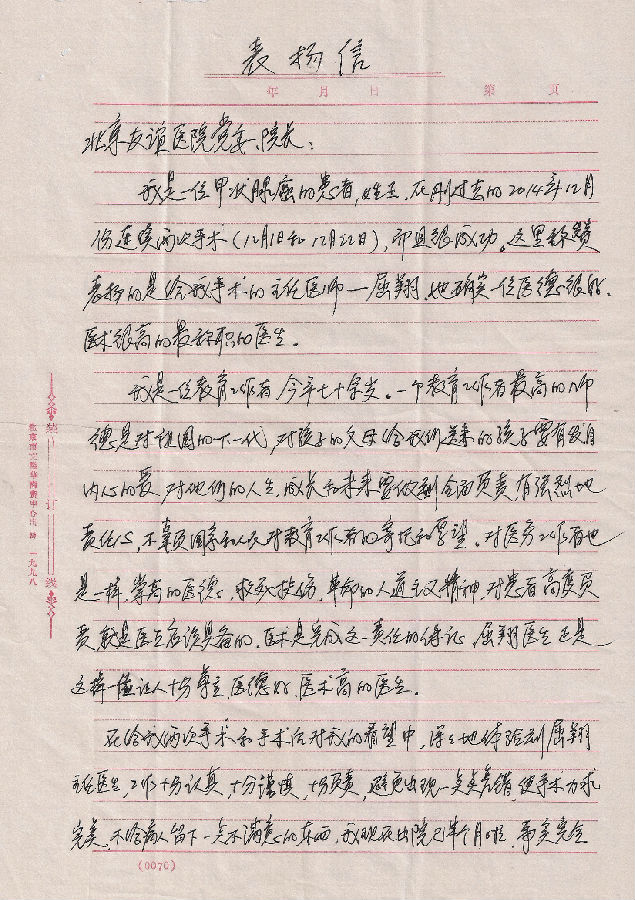 表扬信
年 月 日 第 页
北京友谊医院党委、院长:
我是一位甲状腺癌的患者,姓王,在刚过去的2014年12月
份连续两次手术(12月1日和12月22日),都且很成功。这里称赞
表扬的是给我手术的主任医师—屈翔,她确实一位医德很好、
医术很高的最称职的医生。
我是一位教育工作者 今年七十余岁。一个教育工作者最高的师
德是对祖国的下一代,对孩子的父母给我们送来的孩子要有发自
内心的爱,对他们的人生、成长和未来要做到全面负责 有强烈地
责任心,不辜负国家和人民对教育工作者的寄托和厚望。对医务工作者也
是一样,崇高的医德、救死扶伤,革命的人道主义精神,对患者高度负
责,就是医生应该具备的。医术是完成这一责任的保证。屈翔医生正是
这样一值让人十分尊重 医德好 医术高的医生。
在给我两次手术和手术后对我的看望中,深深地体验到屈翔
主任医生,工作十分认真,十分谨慎,十分负责,避免出现一点点差错,使手术力求
完美,不给病人留下一点不满意的东西,我现在出院已半个月啦,事实完全
装 订 线
一九九八
(0070)